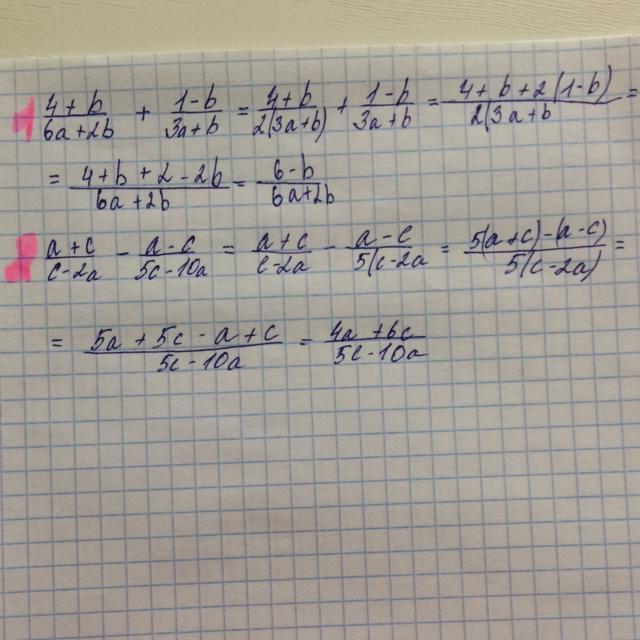 1 \frac{4+b}{6a+2b} + \frac{1-b}{3a+b} = \frac{4+b}{2(3a+b)} + \frac{1-b}{3a+b} = \frac{4+b+2(1-b)}{2(3a+b} =
= \frac{4+b+2-2b}{6a+2b} = \frac{6-b}{6a+2b}
\frac{a+c}{c-2a} - \frac{a-c}{5c-10a} = \frac{a+c}{c-2a} - \frac{a-c}{5(c-2a} = \frac{5(a+c)-(a-c)}{5(c-2a)} =
= \frac{5a+5c-a+c}{5c-10a} = \frac{4a+6c}{5c-10a}